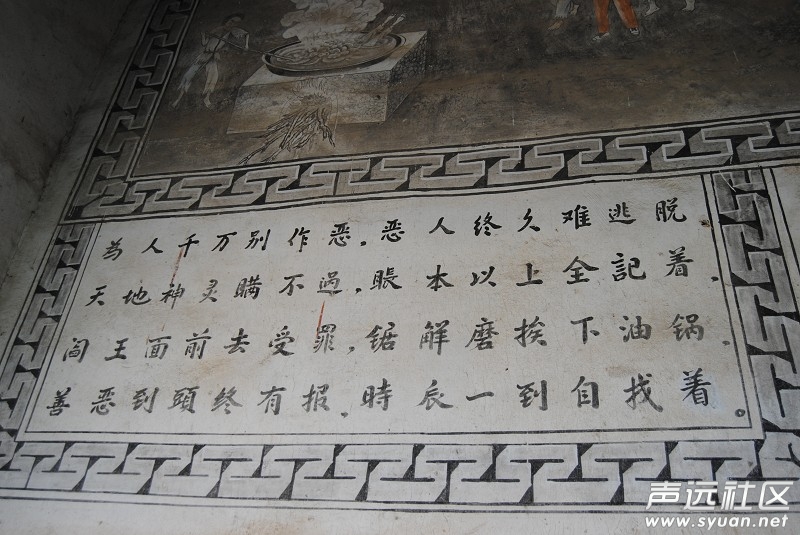 为人千万别作恶，恶人终久难逃脱
天地神灵瞒不过，賬本以上全記着．
阎王面前去受罪，锯解磨挨下油锅．
善恶到頭终有报．時辰一到自找着。
声远社区
www.syuan.net